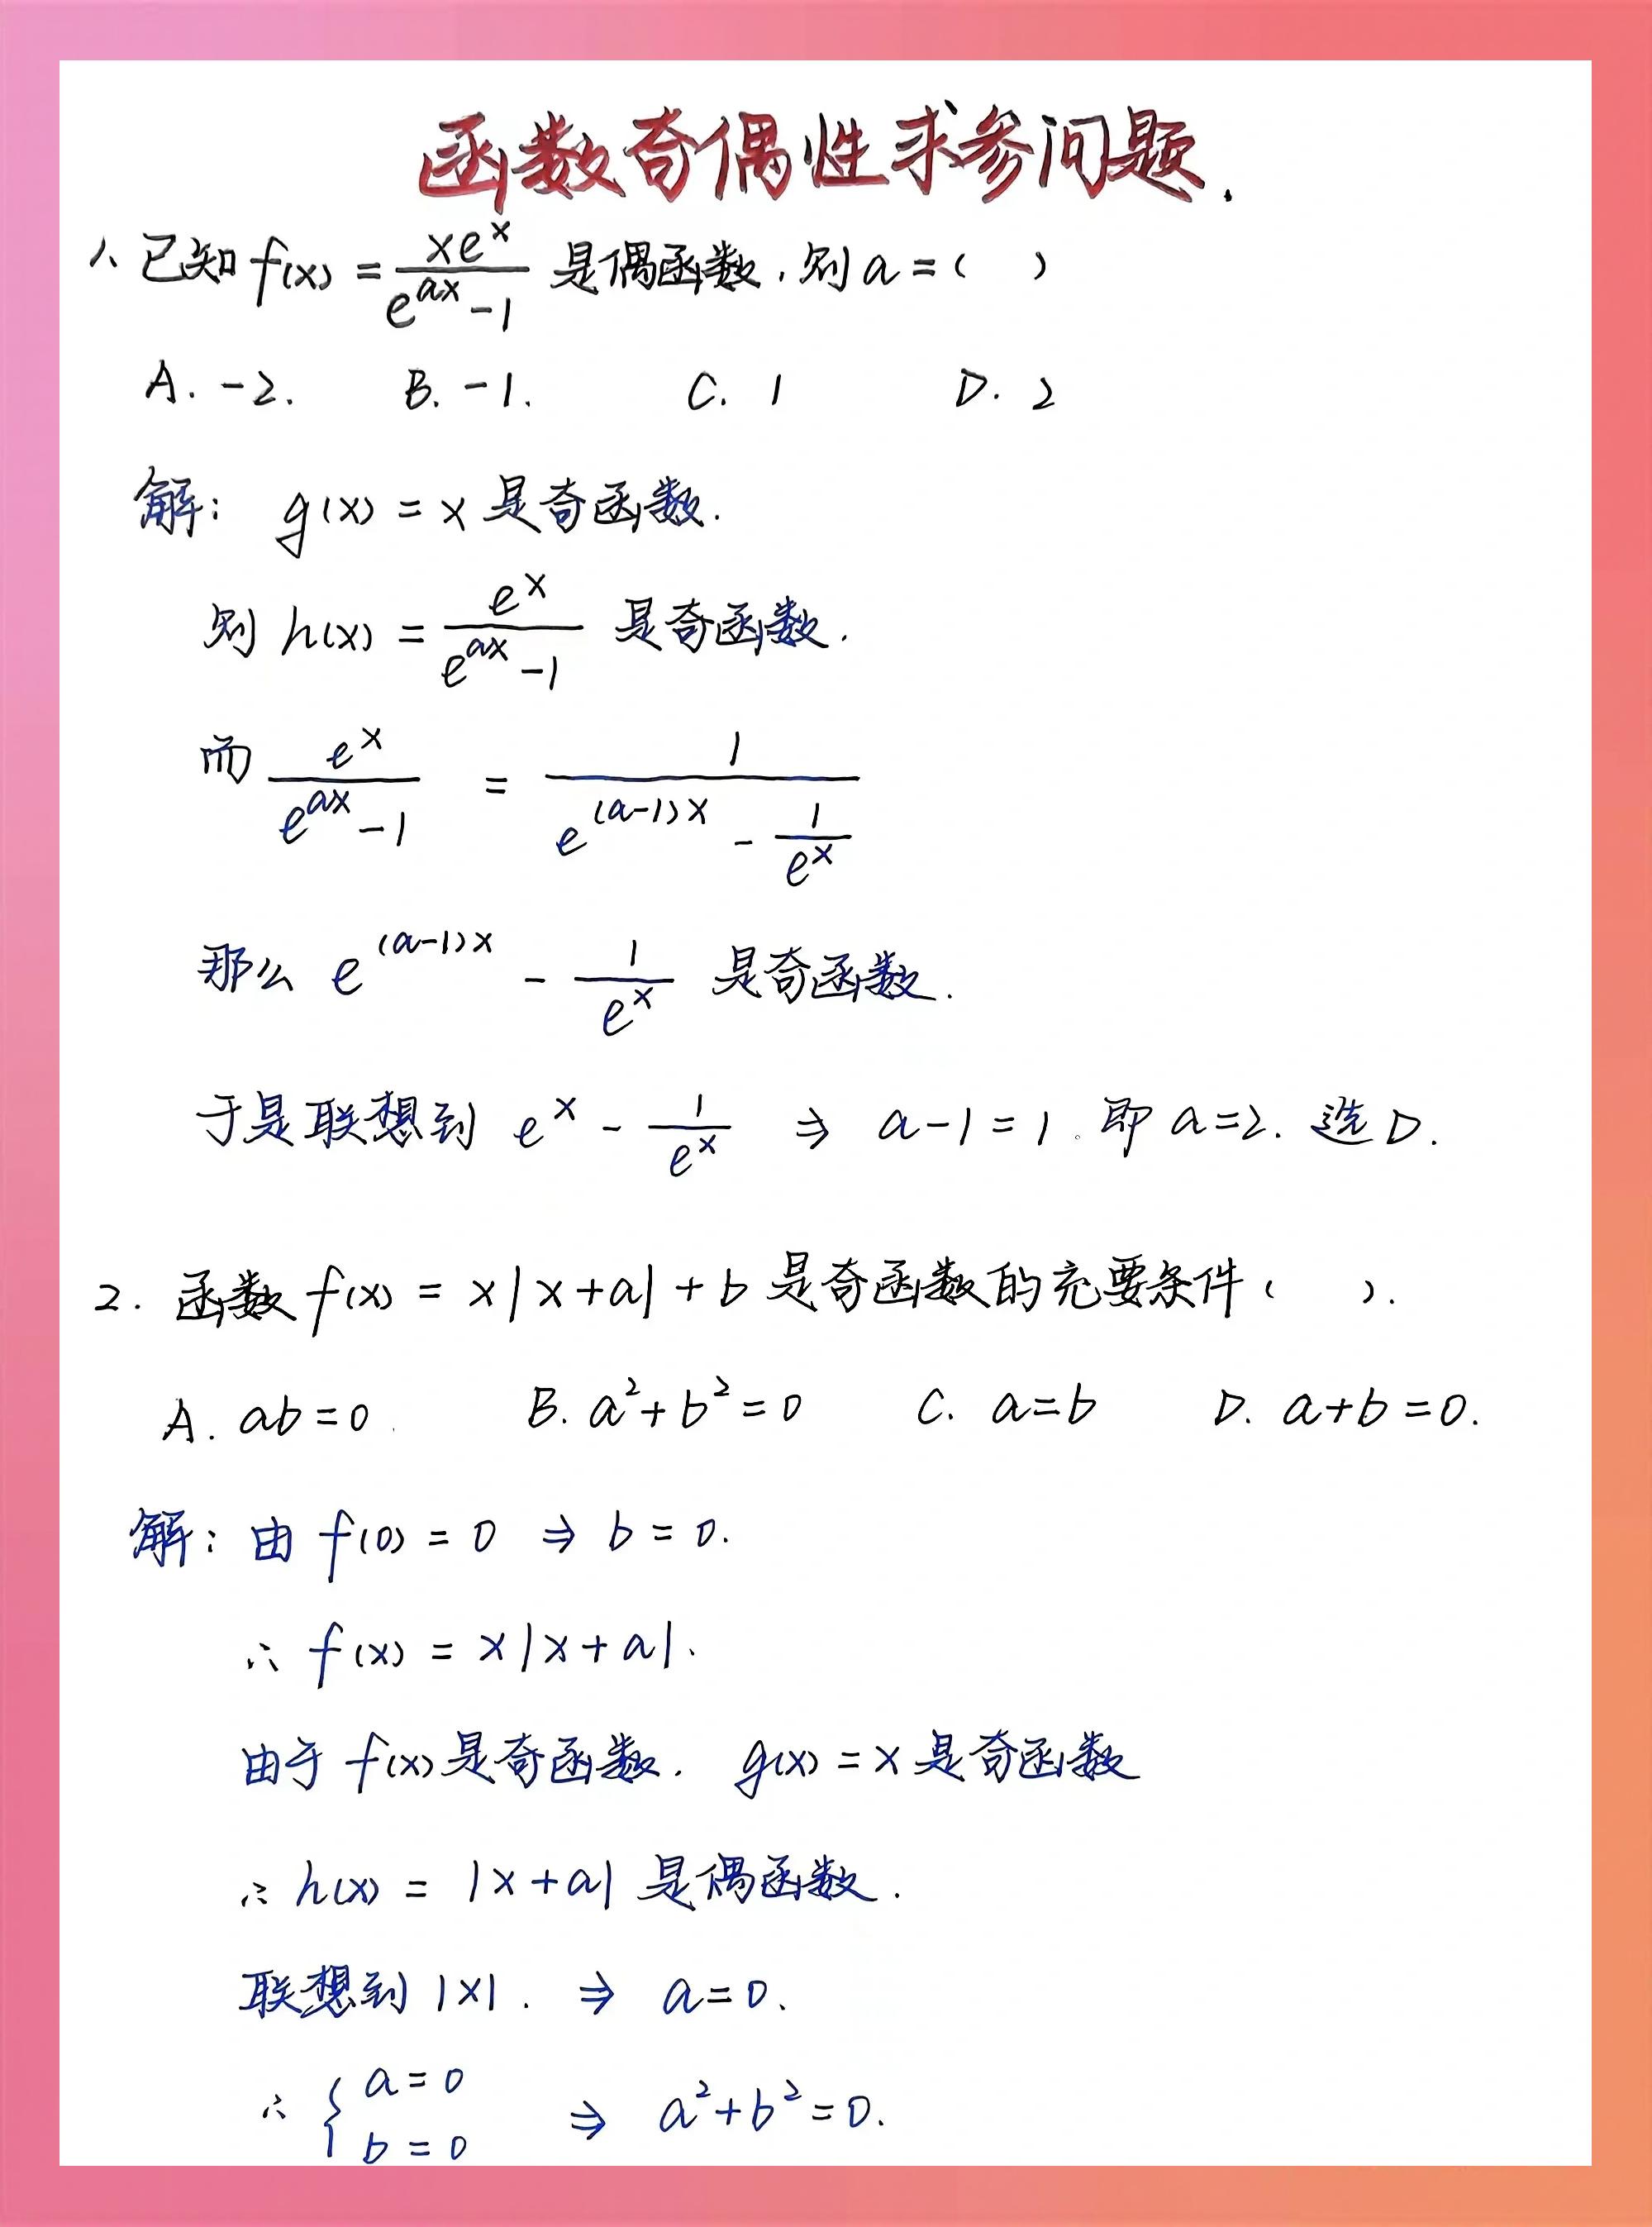 函数奇偶性求参问题.
1、已知 f(x) = \frac{xe^x}{e^{ax}-1} 是偶函数,则 a = ( )
A. -2. B. -1. C. 1 D. 2
解: g(x) = x 是奇函数.
则 h(x) = \frac{e^x}{e^{ax}-1} 是奇函数.
而 \frac{e^x}{e^{ax}-1} = \frac{1}{e^{(a-1)x} - \frac{1}{e^x}}
那么 e^{(a-1)x} - \frac{1}{e^x} 是奇函数.
于是联想到 e^x - \frac{1}{e^x} ⇒ a-1=1. 即 a=2. 选 D.
2. 函数 f(x) = x|x+a|+b 是奇函数的充要条件( ).
A. ab=0. B. a²+b²=0 C. a=b D. a+b=0.
解: 由 f(0) = 0 ⇒ b = 0.
∴ f(x) = x|x+a|.
由于 f(x) 是奇函数. g(x) = x 是奇函数
∴ h(x) = |x+a| 是偶函数.
联想到 |x|. ⇒ a=0.
∴ { a=0 b=0 ⇒ a²+b²=0.